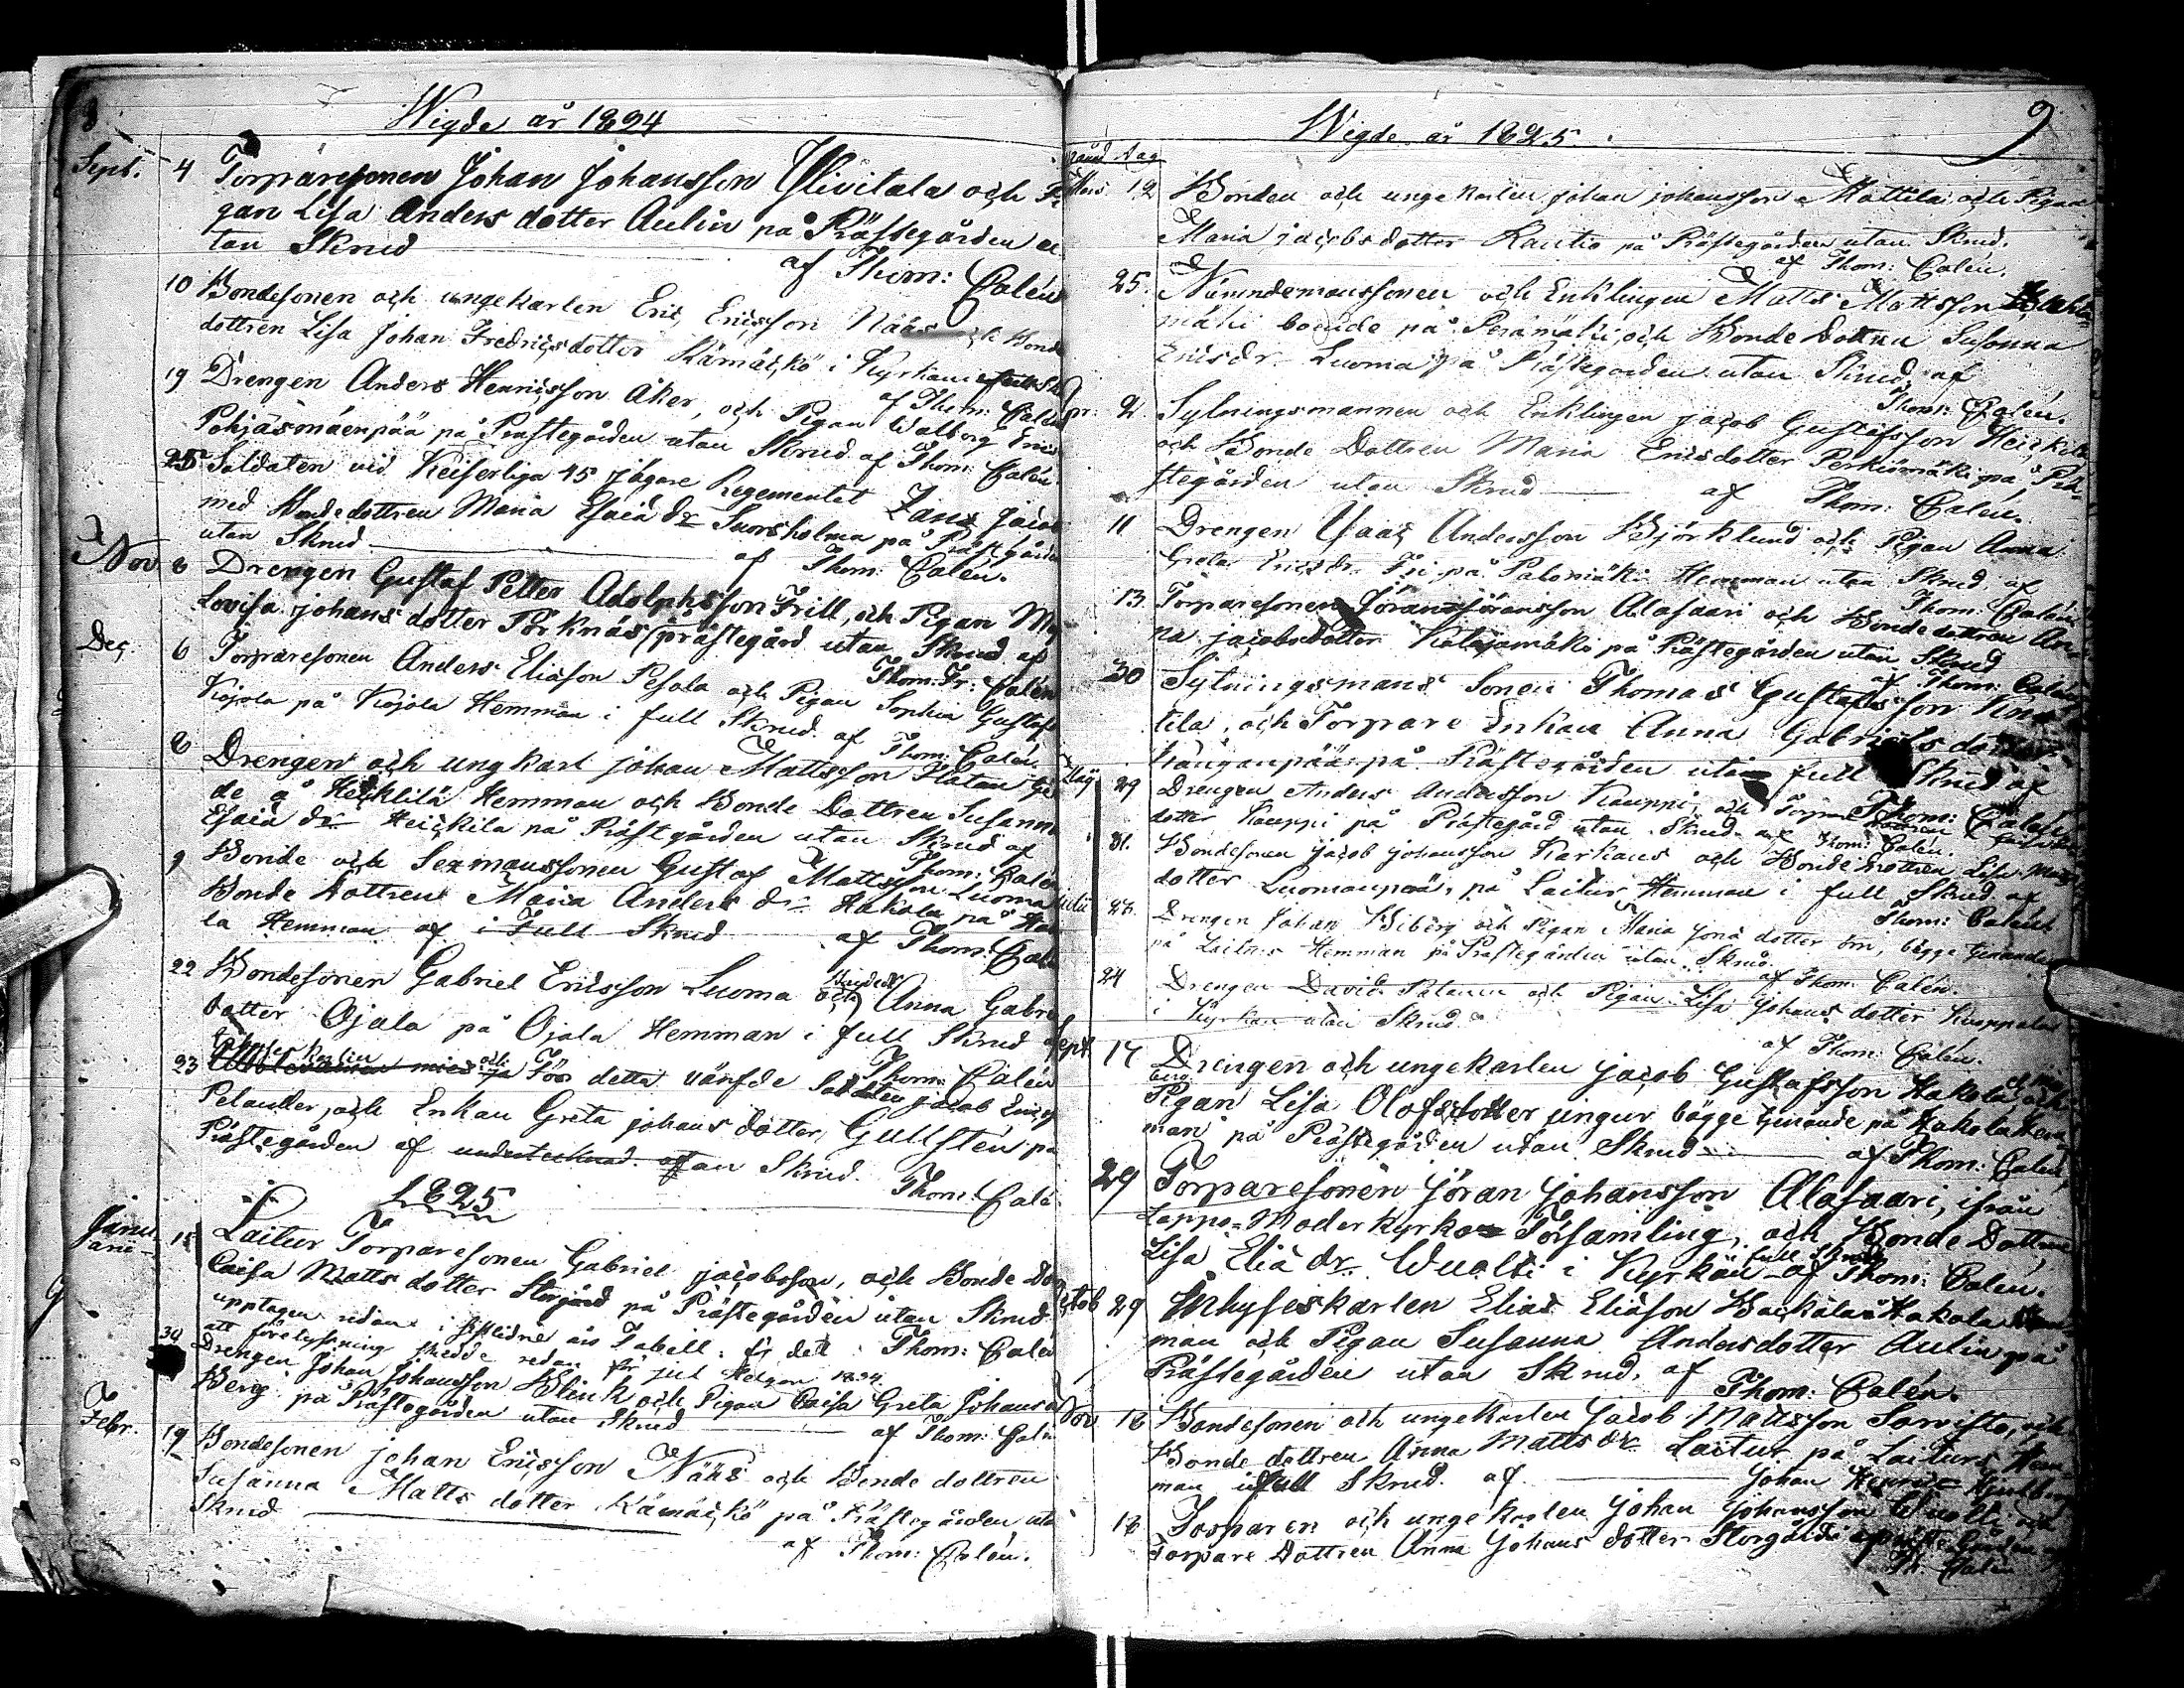 8
Wigde år 1824
Sept. 4 Torparesonen Johan Johansson Ylivitala och Pi
gan Lisa Anders dotter Aulin på Prästegården u
tan Skrud af Thom: Calén
10 Bondesonen och ungekarlen Eric Ericsson Näss och Bonde
dottren Lisa Johan Fredricsdotter Kämäickö i Kyrkan i full Sk
af Thom: Calén
19 Drengen Anders Henricsson Åker, och Pigan Walborg Erics
Pohjasmäenpää på Prästegården utan Skrud af Thom: Calén.
25 Soldaten vid Keiserliga 45 Jägare Regementet Jacob
med Bondedottren Maria Esaiæ dr Suorsholma på Prästgården
utan Skrud af Thom: Calén.
Nov. 8 Drengen Gustaf Petter Adolphsson Frill, och Pigan
Lovisa Johans dotter Pörknäs prästegård utan Skrud af
Thom. Fr: Calén
Dec. 6 Torparesonen Anders Eliæson Pesola och Pigan Sophia Gustafs
Kojola på Kojola Hemman i full Skrud af Thom: Calén
8 Drengen och ungkarl Johan Mattsson Hatan
de å Heickilä Hemman och Bonde Dottren Susanna
Esaiæ dr Heickila på Prästgården utan Skrud af
Thom: Calén
9 Bonde och Sexmanssonen Gustaf Mattsson Luoma
Bonde Dottren Maria Anders dr Hakola på Hako
la Hemman af i Full Skrud af Thom: Calén
22 Bondesonen Gabriel Ericsson Luoma och Anna Gabri
dotter Ojala på Ojala Hemman i full Skrud af
Thom: Calén
23 För detta värfde Soldaten Jacob Erics
Pelander, och Enkan Greta Johans dotter Gullstén på
Prästegården af undertecknad utan Skrud. Thom: Calé.
1825
Janu. 15 Laitur Torparesonen Gabriel Jacobsson, och Bonde Dot
Caisa Matts dotter Storgård på Prästegården utan Skrud
upptagen redan i sistlidne års Tabell: för det Thom: Calén
att förelysning skedde redan för jul Helgen 1824.
30 Drengen Johan Johansson Blink och Pigan Caisa Greta Johans d
Berg på Prästegården utan Skrud af Thom: Calén
Febr. 19 Bondesonen Johan Ericsson Näss och Bonde dottren
Susanna Matts dotter Kämäickö på Prästegården uta
Skrud af Thom: Calén.
9
Wigde år 1825.
Månad Dag
Mars 12 Bonden och ungekarlen Johan Johansson Mattila och Pigan
Maria Jacobsdotter Rautio på Prästegården utan Skrud.
af Thom: Calén.
25. Nämndemanssonen och Enklingen Matts Mattsson
mäki boende på Perämäki, och Bonde Dottren Susanna
Ericsdr. Luoma på Prästegården utan Skrud, af
Thom: Calén.
Apr. 2. Sytningsmannen och Enklingen Jacob Gustafsson Heickilä
och Bonde Dottren Maria Ericsdotter Perkiömäki på Prä
stegården utan Skrud af Thom: Calén.
11 Drengen Isaac Andersson Björklund och Pigan Anna
Greta Ericsdr. Fri på Palomäki Hemman utan Skrud, af
Thom: Calén
13 Torparesonen Jöran Jöransson Alasaari och Bondedottren An
na Jacobsdotter Katajamäki på Prästegården utan Skrud
af Thom: Calén
30 Sytningsmans Sonen Thomas Gustafsson
tila, och Torpare Enkan Anna Gabriels dotter
Kånganpää på Prästegården utan full Skrud af
Thom: Calén
Maj 29 Drengen Anders Andersson Kauppi, och Torpare dottren
dotter Kauppi på Prästegård utan Skrud af Thom: Calén.
31. Bondesonen Jacob Johansson Karhaus och Bonde Dottren Lisa Matts
dotter Luomanpää, på Laitur Hemman i full Skrud, af
Thom: Calén
Julii 23. Drengen Johan Wiberg och Pigan Maria Jonæ dotter Örn, bägge tjenande
på Laiturs Hemman på Prästegården utan Skrud.
af Thom: Calén.
24 Drengen David Patanen och Pigan Lisa Johans dotter Kuoppala
i Kyrkan utan Skrud. af Thom: Calén.
Sept. 17 Drengen och ungekarlen Jacob Gustafsson Hakola och
Pigan Lisa Olofsdotter Ungur bägge tjenande på Hakola Hem
man på Prästegården utan Skrud af Thom: Calén
29 Torparesonen Jöran Johansson Alasaari, ifrån
Lappo-Moderkyrko Församling, och Bonde Dottren
Lisa Eliæ dr. Wuolti i Kyrkan full Skrud af Thom: Calén.
Octob 29 Inhyseskarlen Elias Eliæson Backala å Hakola Hem
man och Pigan Susanna Andersdotter Aulin på
Prästegården utan Skrud, af
Thom: Calén.
Nov. 18 Bondesonen och ungekarlen Jacob Mattsson Sorvisto, och
Bonde dottren Anna Matts dr. Laitur på Laiturs Hem
man i full Skrud. af Johan Henric
18 Torparen och ungekarlen Johan Johansson Wuolti och
Torpare Dottren Anna Johans dotter Storgård
Th. Calén